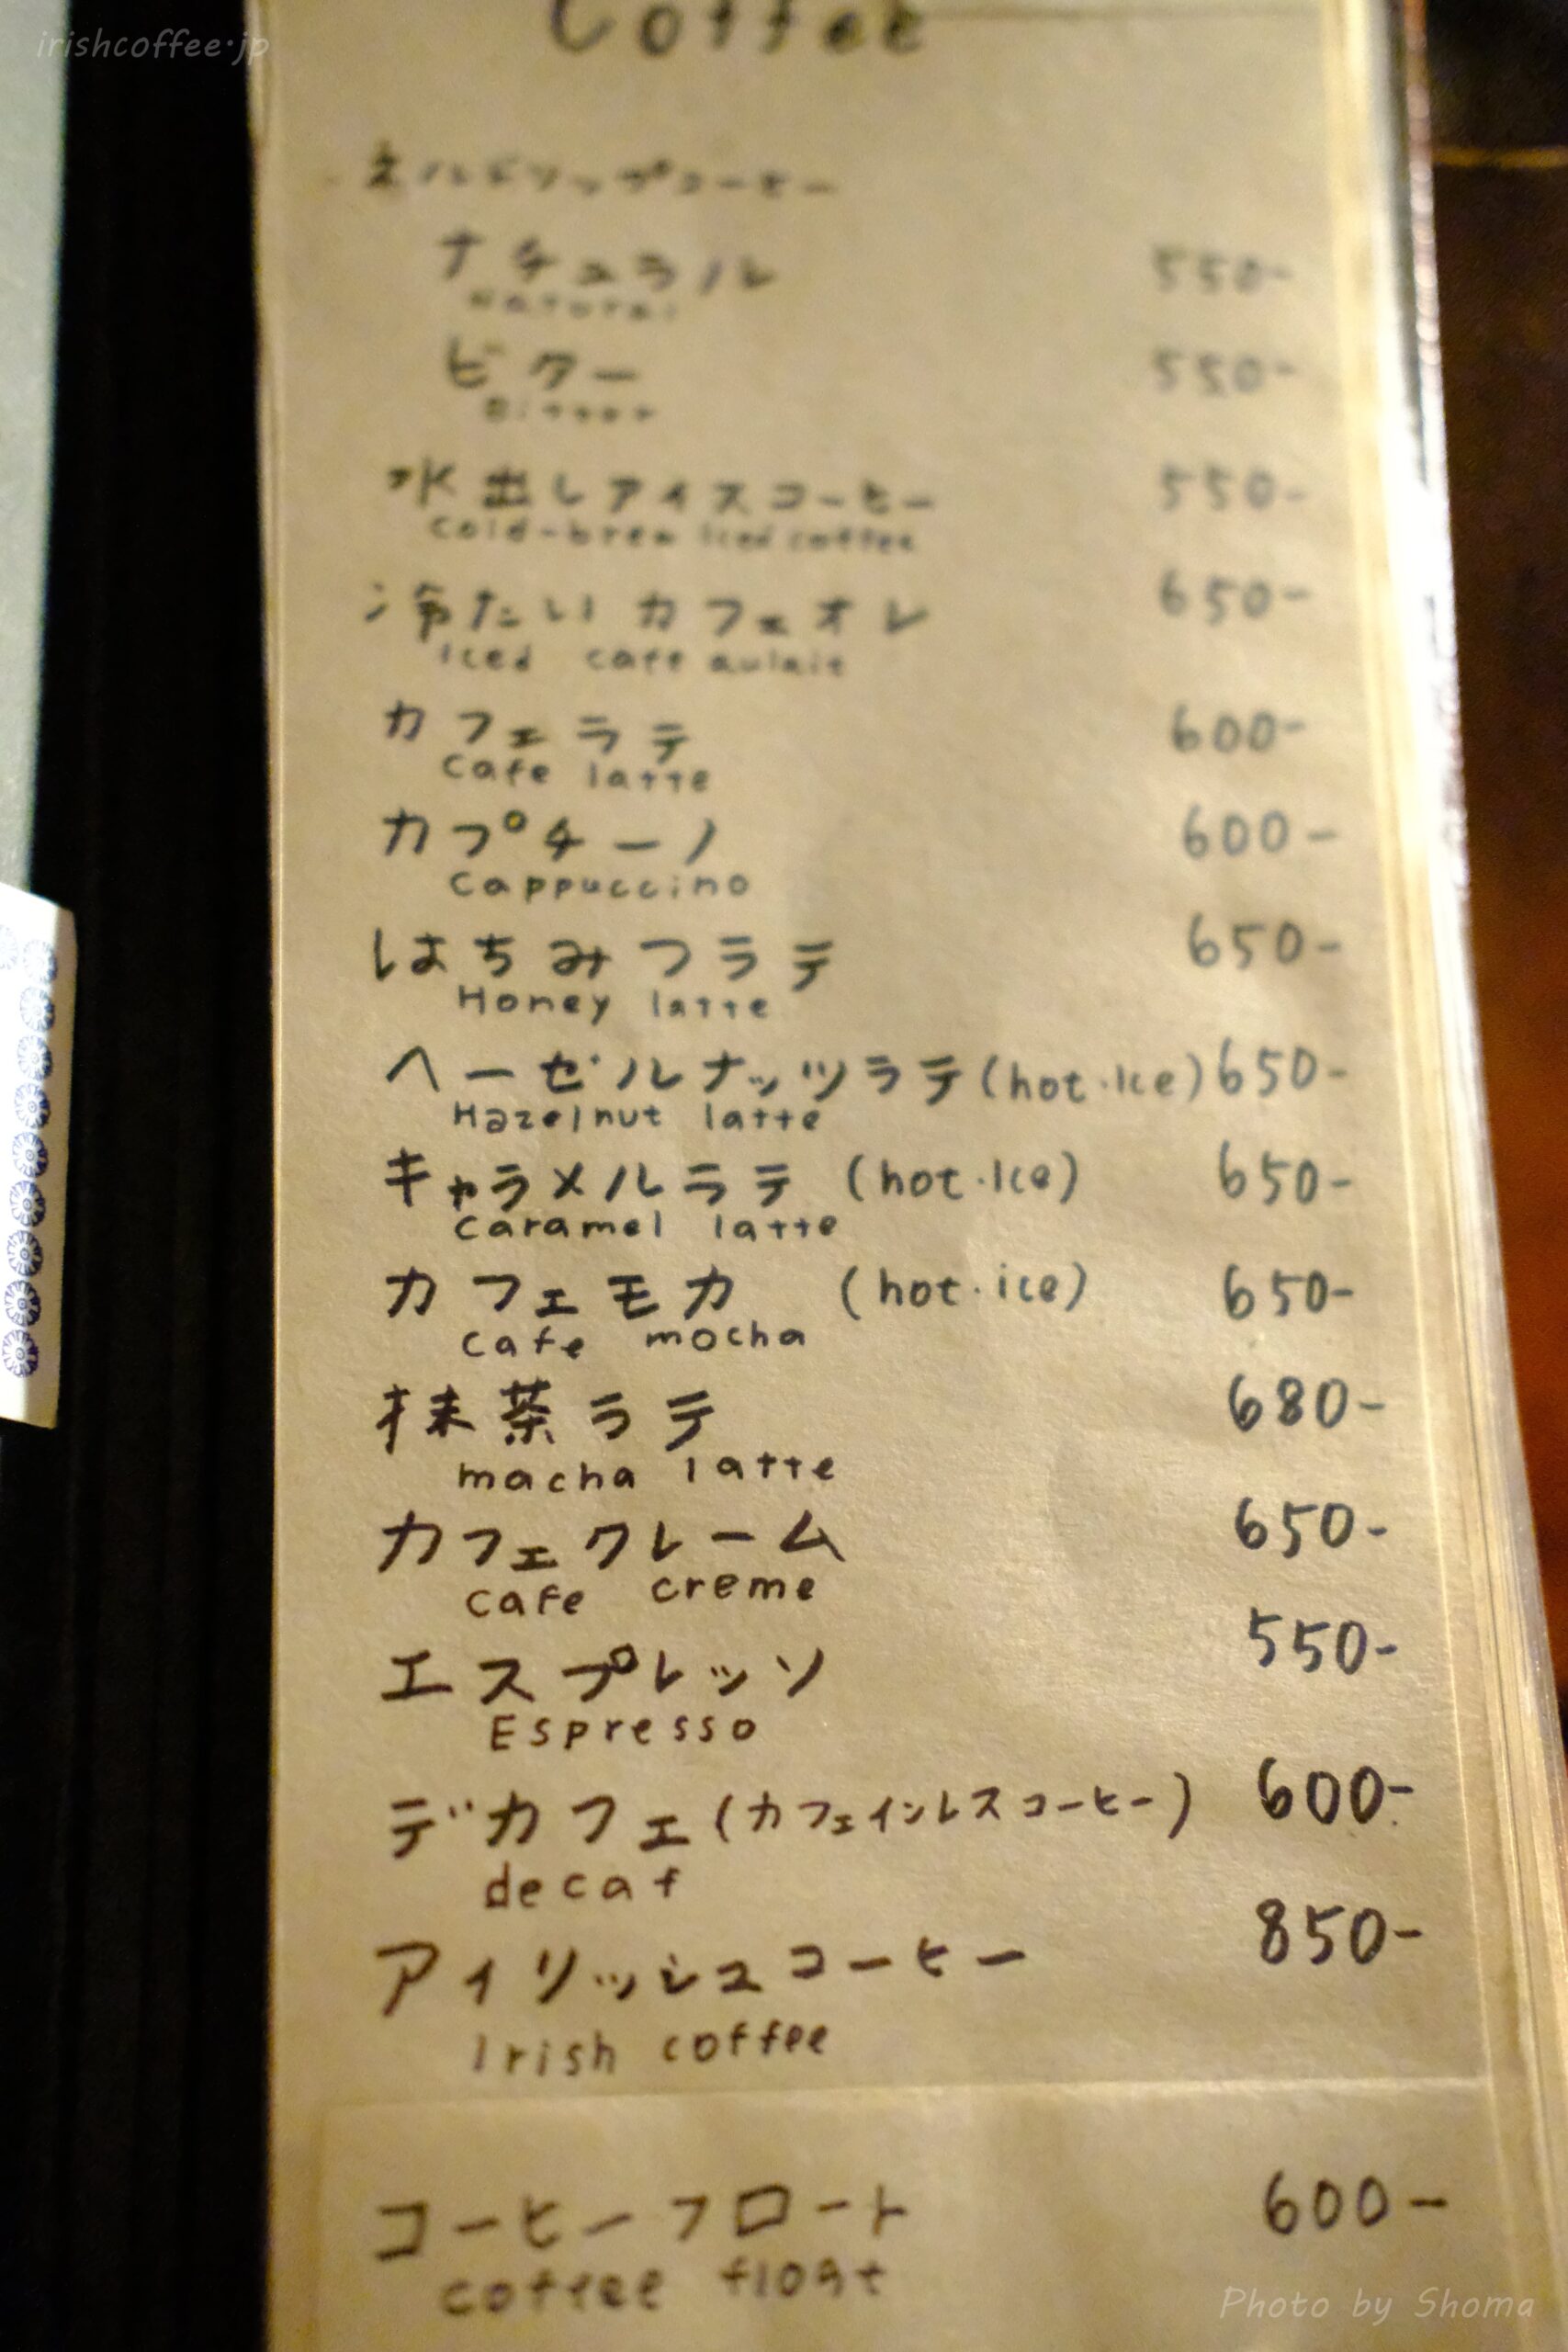 irishcoffee.jp
Coffee
ネルドリップコーヒー
ナチュラル 550-
Natural
ビター 550-
Bitter
水出しアイスコーヒー 550-
Cold-brew Iced coffee
冷たいカフェオレ 650-
Iced cafe aulait
カフェラテ 600-
Cafe latte
カプチーノ 600-
Cappuccino
はちみつラテ 650-
Honey latte
ヘーゼルナッツラテ (hot・Ice) 650-
Hazelnut latte
キャラメルラテ (hot・Ice) 650-
Caramel latte
カフェモカ (hot・ice) 650-
cafe mocha
抹茶ラテ 680-
macha latte
カフェクレーム 650-
cafe creme
エスプレッソ 550-
Espresso
デカフェ (カフェインレスコーヒー) 600-
decaf
アイリッシュコーヒー 850-
Irish coffee
コーヒーフロート 600-
coffee float
Photo by Shoma